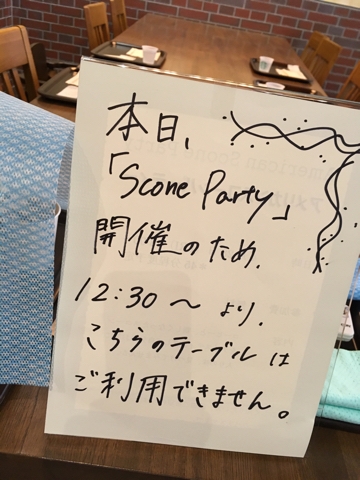 本日、
「Scone Party」
開催のため、
12:30～より、
こちらのテーブルは
ご利用できません。